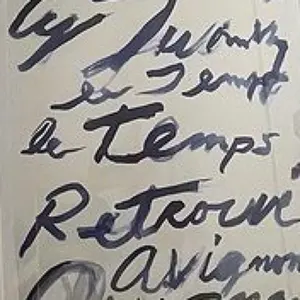 Cy Twombly
le Temps
le Temps
Retrouvé
Avignon